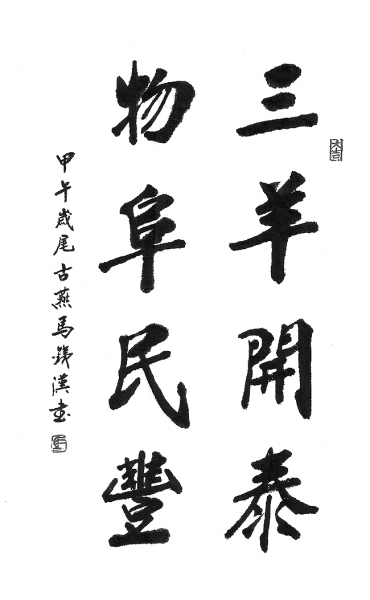 三羊開泰
物阜民豐
甲午歲尾古燕馬鐵漢書